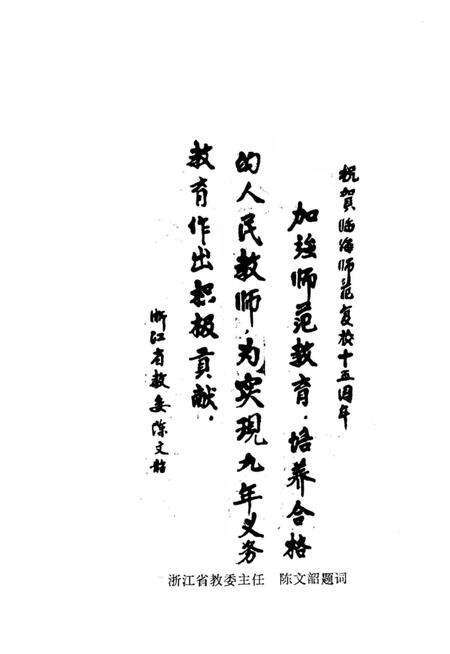 祝賀临海师范复校十五周年
加強师范教育，培养合格
的人民教师，为实现九年义务
教育作出积极貢献。
浙江省教委陈文韶
浙江省教委主任　陈文韶题词